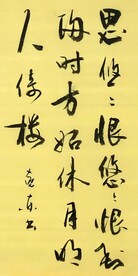 思悠悠恨悠悠恨到
归时方始休月明
人倚楼